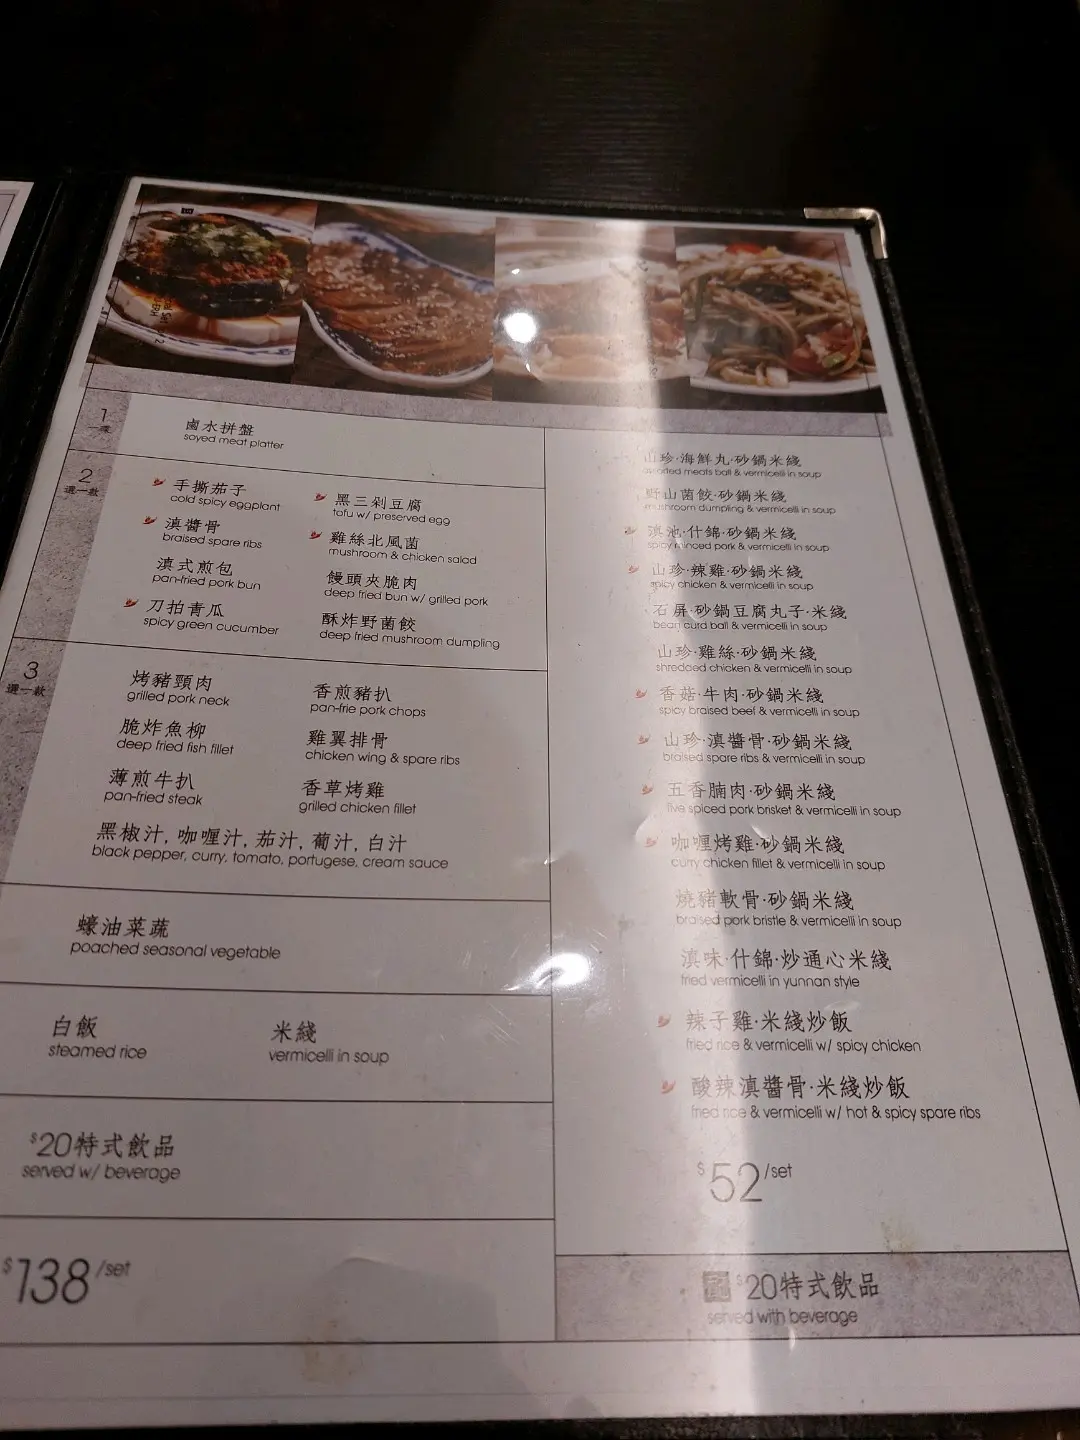 1
鹵水拼盤
soyed meat platter
2
選一款
手撕茄子
cold spicy eggplant
黑三剁豆腐
tofu w/ preserved egg
滇醬骨
braised spare ribs
雞絲北風菌
mushroom & chicken salad
滇式煎包
pan-fried pork bun
饅頭夾脆肉
deep fried bun w/ grilled pork
刀拍青瓜
spicy green cucumber
酥炸野菌餃
deep fried mushroom dumpling
3
選一款
烤豬頸肉
grilled pork neck
香煎豬扒
pan-frie pork chops
脆炸魚柳
deep fried fish fillet
雞翼排骨
chicken wing & spare ribs
薄煎牛扒
pan-fried steak
香草烤雞
grilled chicken fillet
黑椒汁, 咖喱汁, 茄汁, 葡汁, 白汁
black pepper, curry, tomato, portugese, cream sauce
蠔油菜蔬
poached seasonal vegetable
白飯
steamed rice
米綫
vermicelli in soup
$20特式飲品
served w/ beverage
$138/set
山珍·海鮮丸·砂鍋米綫
assorted meats ball & vermicelli in soup
野山菌餃·砂鍋米綫
mushroom dumpling & vermicelli in soup
滇池·什錦·砂鍋米綫
spicy minced pork & vermicelli in soup
山珍·辣雞·砂鍋米綫
spicy chicken & vermicelli in soup
石屏·砂鍋豆腐丸子·米綫
bean curd ball & vermicelli in soup
山珍·雞絲·砂鍋米綫
shredded chicken & vermicelli in soup
香菇·牛肉·砂鍋米綫
spicy braised beef & vermicelli in soup
山珍·滇醬骨·砂鍋米綫
braised spare ribs & vermicelli in soup
五香腩肉·砂鍋米綫
five spiced pork brisket & vermicelli in soup
咖喱烤雞·砂鍋米綫
curry chicken fillet & vermicelli in soup
燒豬軟骨·砂鍋米綫
braised pork bristle & vermicelli in soup
滇味·什錦·炒通心米綫
fried vermicelli in yunnan style
辣子雞·米綫炒飯
fried rice & vermicelli w/ spicy chicken
酸辣滇醬骨·米綫炒飯
fried rice & vermicelli w/ hot & spicy spare ribs
$52/set
$20特式飲品
served with beverage